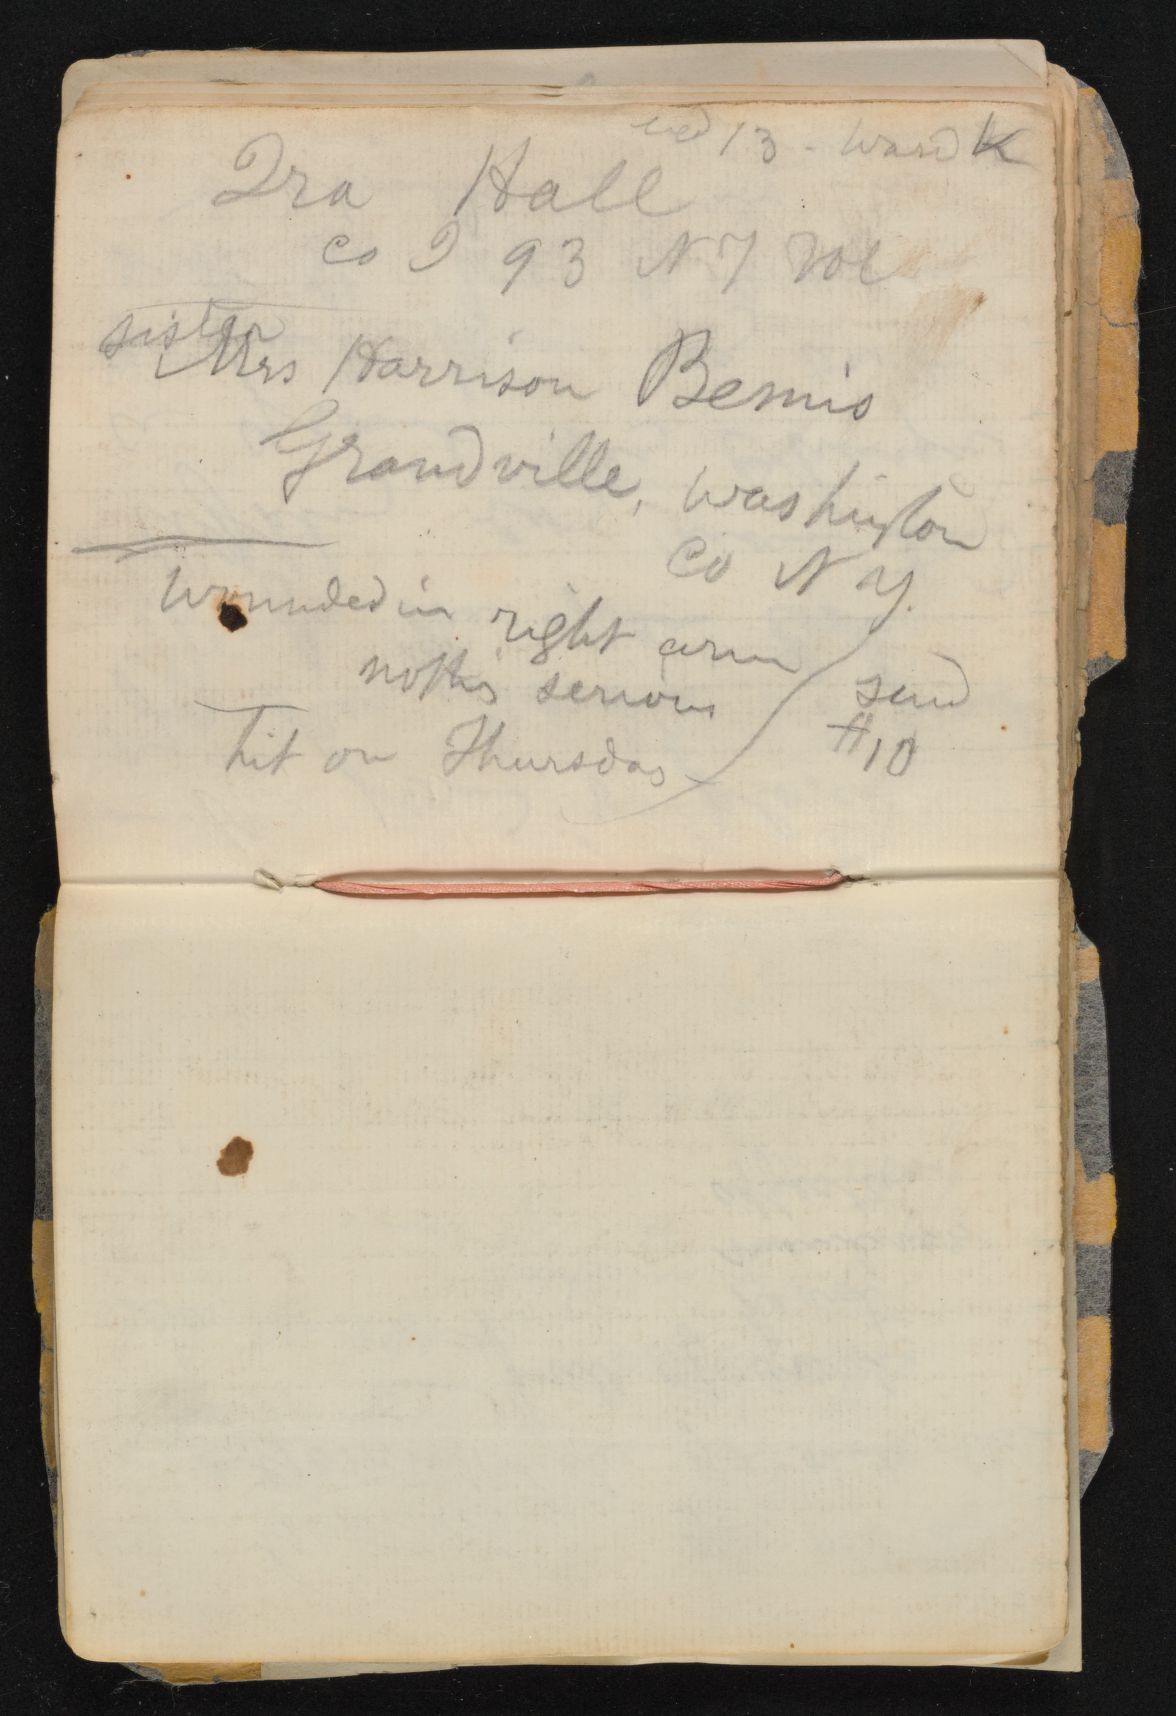 bed 13 - Ward K
Ira Hall
co I 93 N Y Vol
sister
Mrs Harrison Bemis
Grandville, Washington
Co N Y.
wounded in right arm
nothg serious
send
$10
hit on Thursday